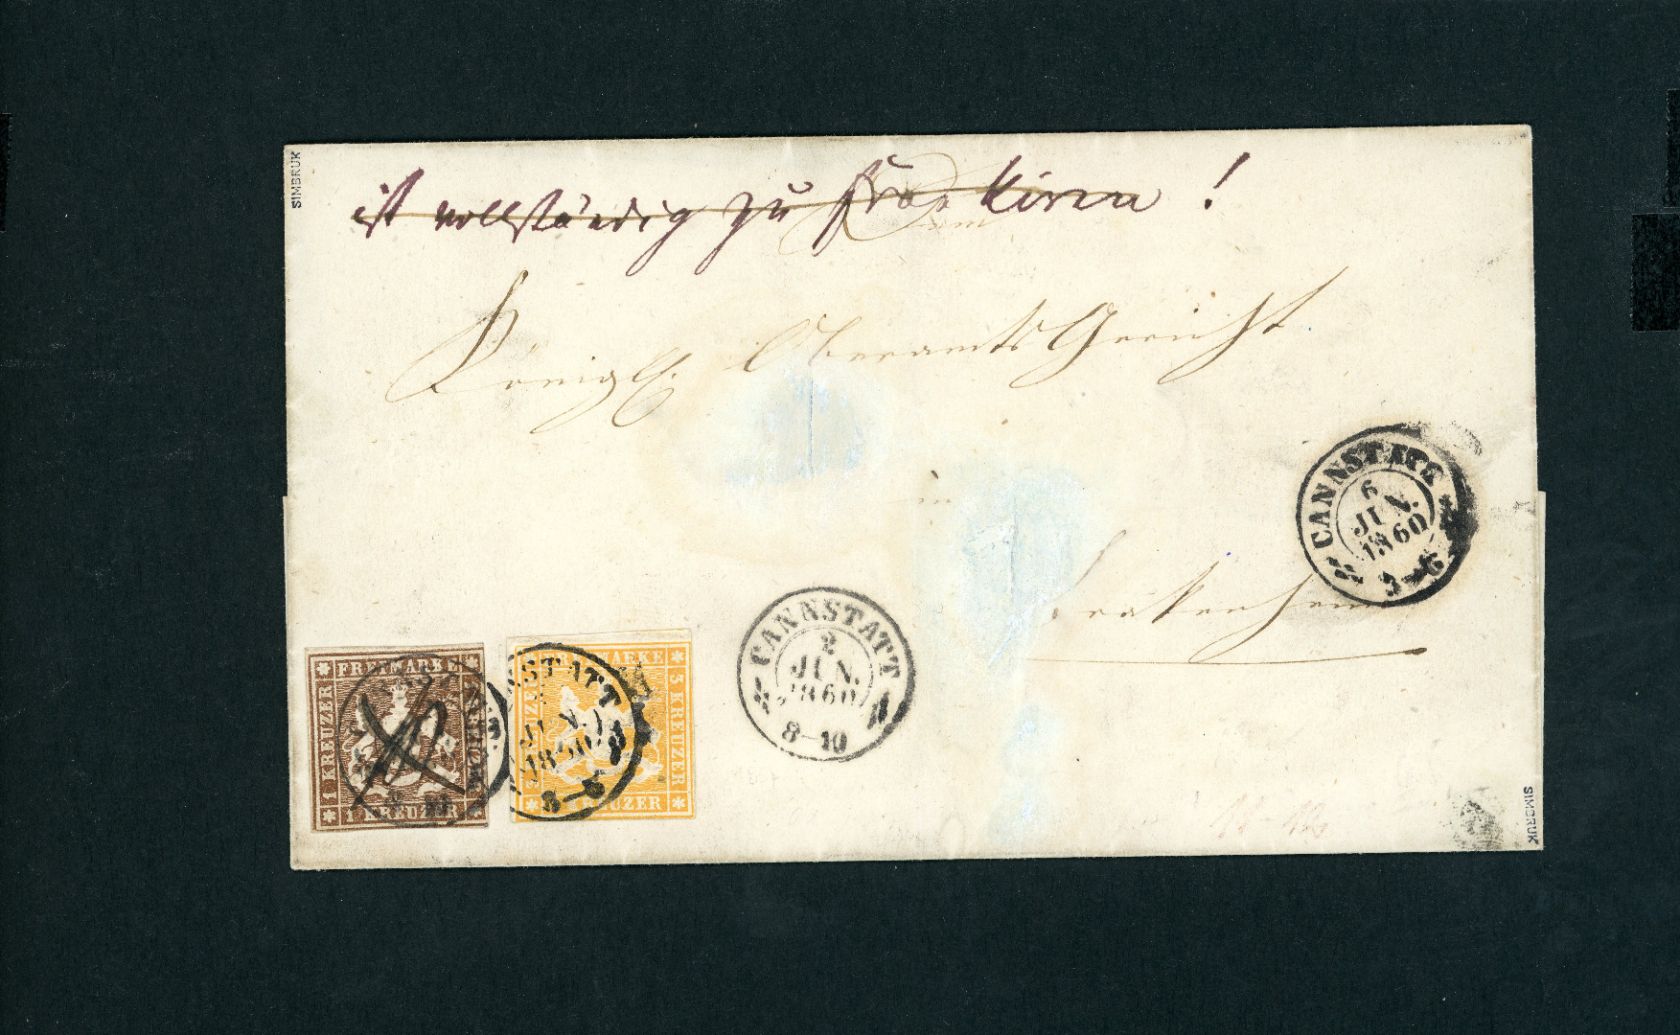 SIMBRUK
ist vollständig zu frankiren !
Dem
Königl. Oberamts Gericht
in
Brakenheim
CANNSTATT
6
JUN.
1860
3-6
CANNSTATT
2
JUN.
1860
8-10
FREIMARKE
1 KREUZER
1 KREUZER
FREIMARKE
3 KREUZER
3 KREUZER
JUN.
1860
11-12
SIMBRUK